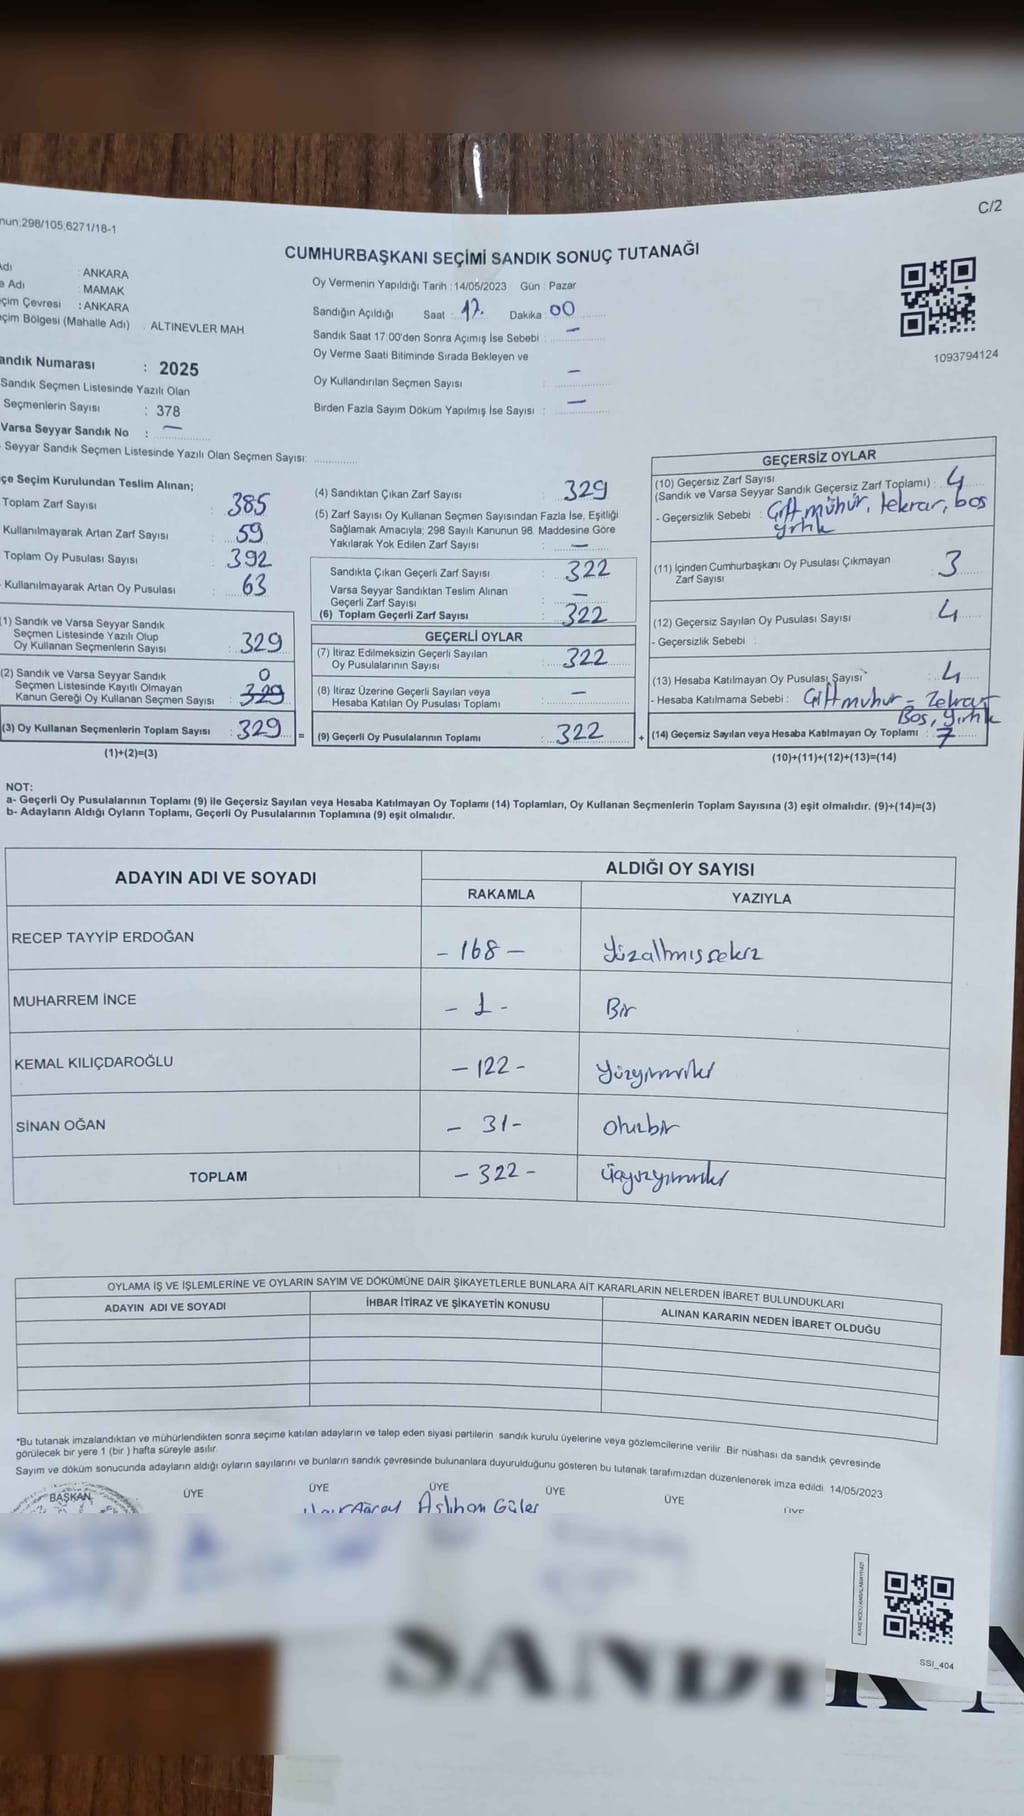 C/2
nun:298/105;6271/18-1
CUMHURBAŞKANI SEÇİMİ SANDIK SONUÇ TUTANAĞI
Adı : ANKARA
e Adı : MAMAK
çim Çevresi : ANKARA
çim Bölgesi (Mahalle Adı) : ALTINEVLER MAH.
andık Numarası : 2025
Sandık Seçmen Listesinde Yazılı Olan
Seçmenlerin Sayısı : 378
Varsa Seyyar Sandık No : —
Seyyar Sandık Seçmen Listesinde Yazılı Olan Seçmen Sayısı:
Oy Vermenin Yapıldığı Tarih : 14/05/2023 Gün : Pazar
Sandığın Açıldığı Saat : 17. Dakika : 00
Sandık Saat 17:00'den Sonra Açımış İse Sebebi : —
Oy Verme Saati Bitiminde Sırada Bekleyen ve
Oy Kullandırılan Seçmen Sayısı : —
Birden Fazla Sayım Döküm Yapılmış İse Sayısı : —
1093794124
çe Seçim Kurulundan Teslim Alınan;
Toplam Zarf Sayısı : 385
Kullanılmayarak Artan Zarf Sayısı : 59
Toplam Oy Pusulası Sayısı : 392
Kullanılmayarak Artan Oy Pusulası : 63
(1) Sandık ve Varsa Seyyar Sandık
Seçmen Listesinde Yazılı Olup
Oy Kullanan Seçmenlerin Sayısı : 329
(2) Sandık ve Varsa Seyyar Sandık
Seçmen Listesinde Kayıtlı Olmayan
Kanun Gereği Oy Kullanan Seçmen Sayısı : 329 0
(3) Oy Kullanan Seçmenlerin Toplam Sayısı : 329 =
(1)+(2)=(3)
(4) Sandıktan Çıkan Zarf Sayısı : 329
(5) Zarf Sayısı Oy Kullanan Seçmen Sayısından Fazla İse, Eşitliği
Sağlamak Amacıyla; 298 Sayılı Kanunun 98. Maddesine Göre
Yakılarak Yok Edilen Zarf Sayısı : —
Sandıkta Çıkan Geçerli Zarf Sayısı : 322
Varsa Seyyar Sandıktan Teslim Alınan
Geçerli Zarf Sayısı : —
(6) Toplam Geçerli Zarf Sayısı : 322
GEÇERLİ OYLAR
(7) İtiraz Edilmeksizin Geçerli Sayılan
Oy Pusulalarının Sayısı : 322
(8) İtiraz Üzerine Geçerli Sayılan veya
Hesaba Katılan Oy Pusulası Toplamı : —
(9) Geçerli Oy Pusulalarının Toplamı : 322 +
GEÇERSİZ OYLAR
(10) Geçersiz Zarf Sayısı
(Sandık ve Varsa Seyyar Sandık Geçersiz Zarf Toplamı) : 4
- Geçersizlik Sebebi : Çift mühür, tekrar, boş
yırtık
(11) İçinden Cumhurbaşkanı Oy Pusulası Çıkmayan
Zarf Sayısı : 3
(12) Geçersiz Sayılan Oy Pusulası Sayısı : 4
- Geçersizlik Sebebi :
(13) Hesaba Katılmayan Oy Pusulası Sayısı : 4
- Hesaba Katılmama Sebebi : Çift muhur - Tekrar
Boş, yırtık
(14) Geçersiz Sayılan veya Hesaba Katılmayan Oy Toplamı : 7
(10)+(11)+(12)+(13)=(14)
NOT:
a- Geçerli Oy Pusulalarının Toplamı (9) ile Geçersiz Sayılan veya Hesaba Katılmayan Oy Toplamı (14) Toplamları, Oy Kullanan Seçmenlerin Toplam Sayısına (3) eşit olmalıdır. (9)+(14)=(3)
b- Adayların Aldığı Oyların Toplamı, Geçerli Oy Pusulalarının Toplamına (9) eşit olmalıdır.
ADAYIN ADI VE SOYADI ALDIĞI OY SAYISI
RAKAMLA YAZIYLA
RECEP TAYYİP ERDOĞAN - 168 - Yüzaltmışsekiz
MUHARREM İNCE - 1 - Bir
KEMAL KILIÇDAROĞLU - 122 - Yüzyirmiiki
SİNAN OĞAN - 31 - Otuzbir
TOPLAM - 322 - Üçyüzyirmiiki
OYLAMA İŞ VE İŞLEMLERİNE VE OYLARIN SAYIM VE DÖKÜMÜNE DAİR ŞİKAYETLERLE BUNLARA AİT KARARLARIN NELERDEN İBARET BULUNDUKLARI
ADAYIN ADI VE SOYADI İHBAR İTİRAZ VE ŞİKAYETİN KONUSU ALINAN KARARIN NEDEN İBARET OLDUĞU
*Bu tutanak imzalandıktan ve mühürlendikten sonra seçime katılan adayların ve talep eden siyasi partilerin sandık kurulu üyelerine veya gözlemcilerine verilir. Bir nüshası da sandık çevresinde
görülecek bir yere 1 (bir) hafta süreyle asılır.
Sayım ve döküm sonucunda adayların aldığı oyların sayılarını ve bunların sandık çevresinde bulunanlara duyurulduğunu gösteren bu tutanak tarafımızdan düzenlenerek imza edildi. 14/05/2023
BAŞKAN ÜYE ÜYE ÜYE ÜYE ÜYE ÜYE
Aslıhan Güler
SSİ_404
SANDIK N